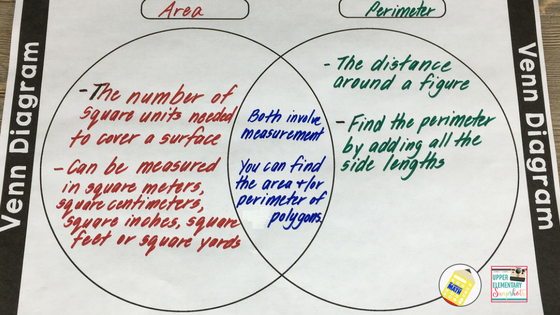 Area
Perimeter
Venn Diagram
- The number of
square units needed
to cover a surface
- Can be measured
in square meters,
square centimeters,
square inches, square
feet or square yards
Both involve
measurement
You can find
the area +/or
perimeter of
polygons.
- The distance
around a figure
- Find the perimeter
by adding all the
side lengths
Venn Diagram
MATH
UPPER
ELEMENTARY
Snapshots